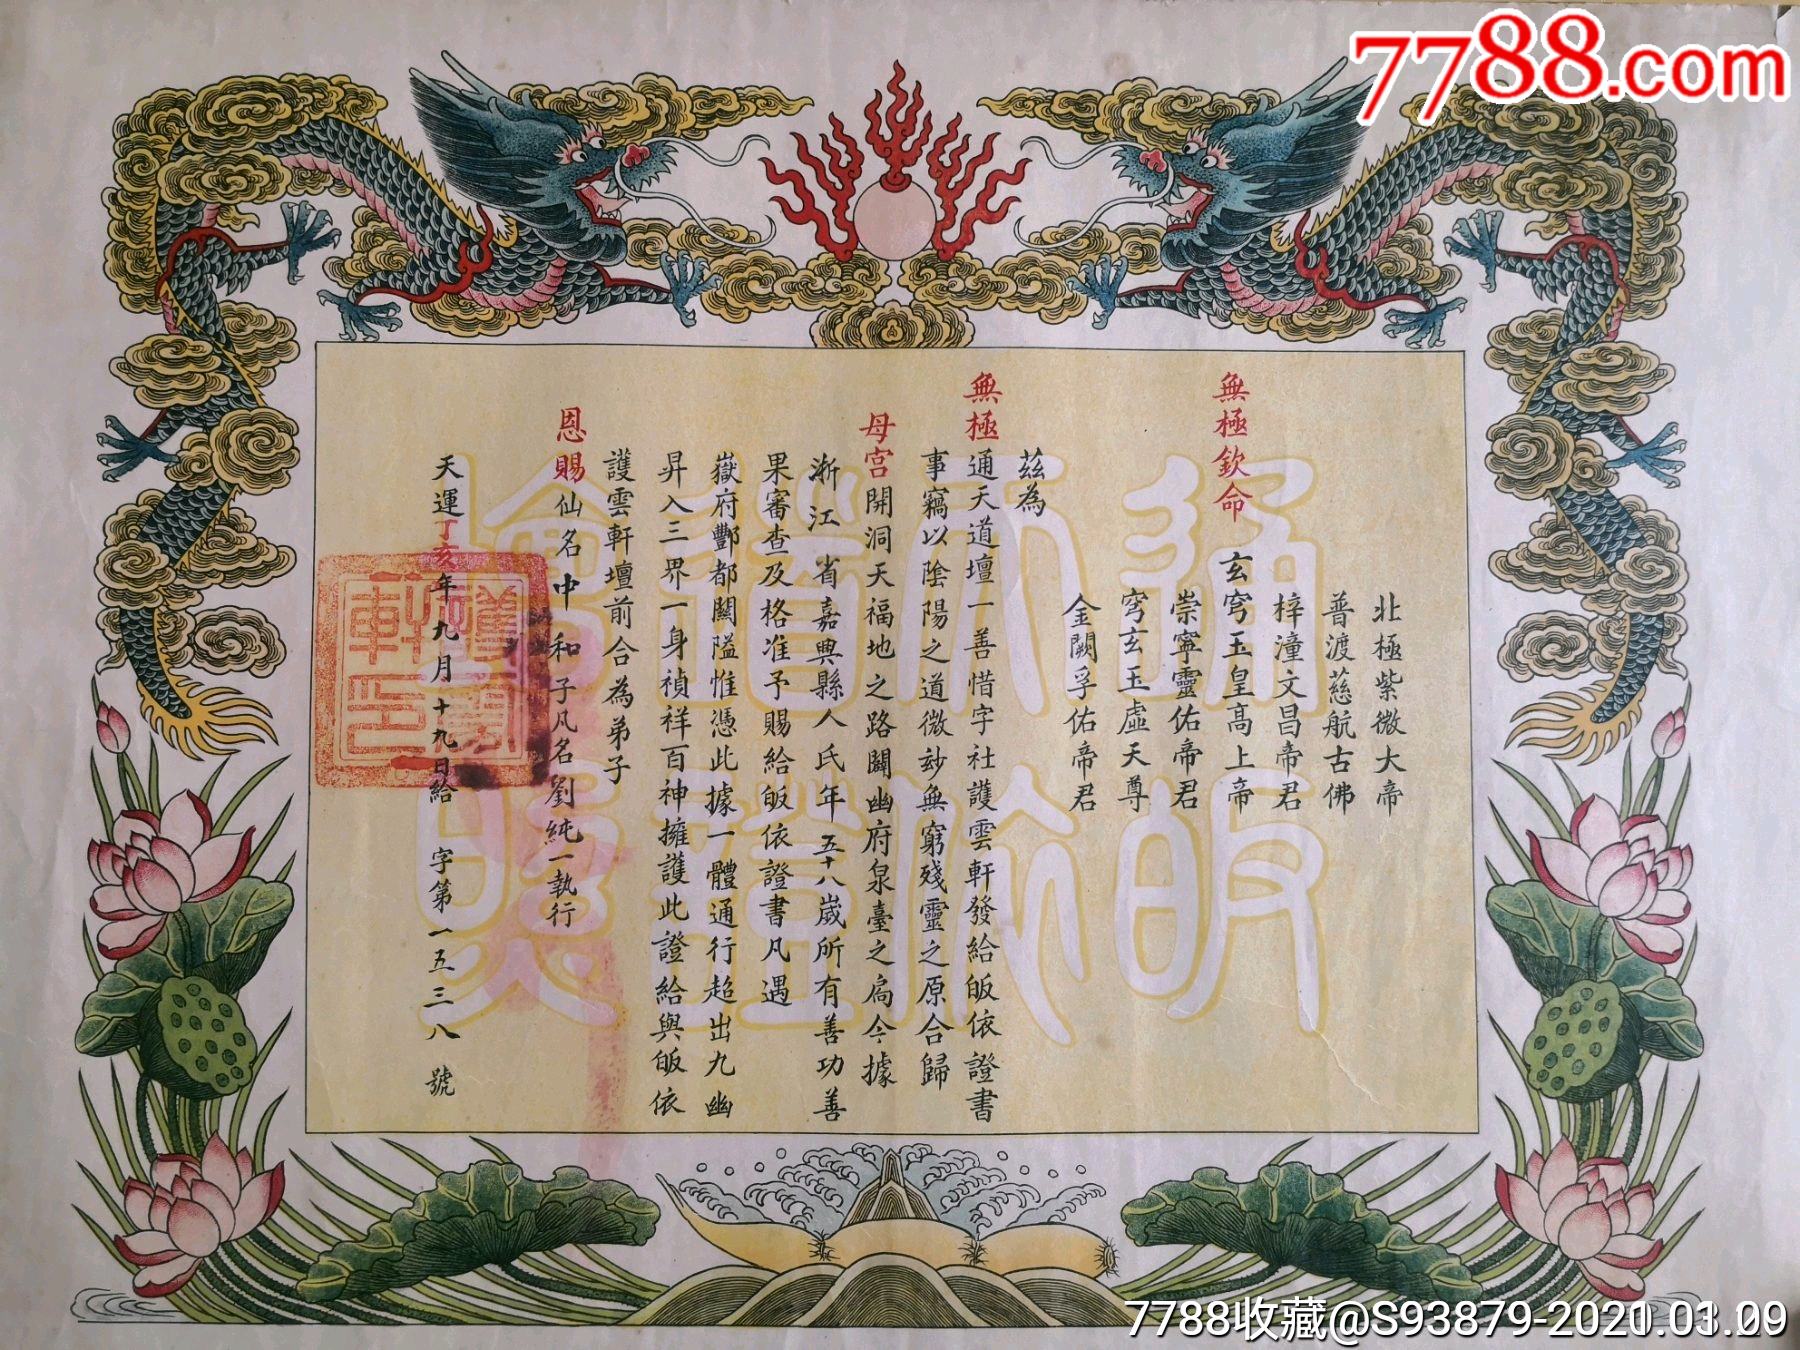 7788.com
北極紫微大帝
普渡慈航古佛
梓潼文昌帝君
無極欽命 玄穹玉皇高上帝
崇寧靈佑帝君
穹玄玉虛天尊
金闕孚佑帝君
茲為
無極通天道壇一善惜字社護雲軒發給皈依證書
事竊以陰陽之道微玅無窮殘靈之原合歸
母宮開洞天福地之路闢幽府泉臺之扃今據
浙江省嘉興縣人氏年五十八歲所有善功善
果審查及格准予賜給皈依證書凡遇
嶽府酆都關隘惟憑此據一體通行超出九幽
昇入三界一身禎祥百神擁護此證給與皈依
護雲軒壇前合為弟子
恩賜仙名中和子凡名劉純一執行
天運丁亥年九月十九日給 字第一五三八號
護雲軒印
通天道壇
皈依證
7788收藏@S93879-2020.03.09